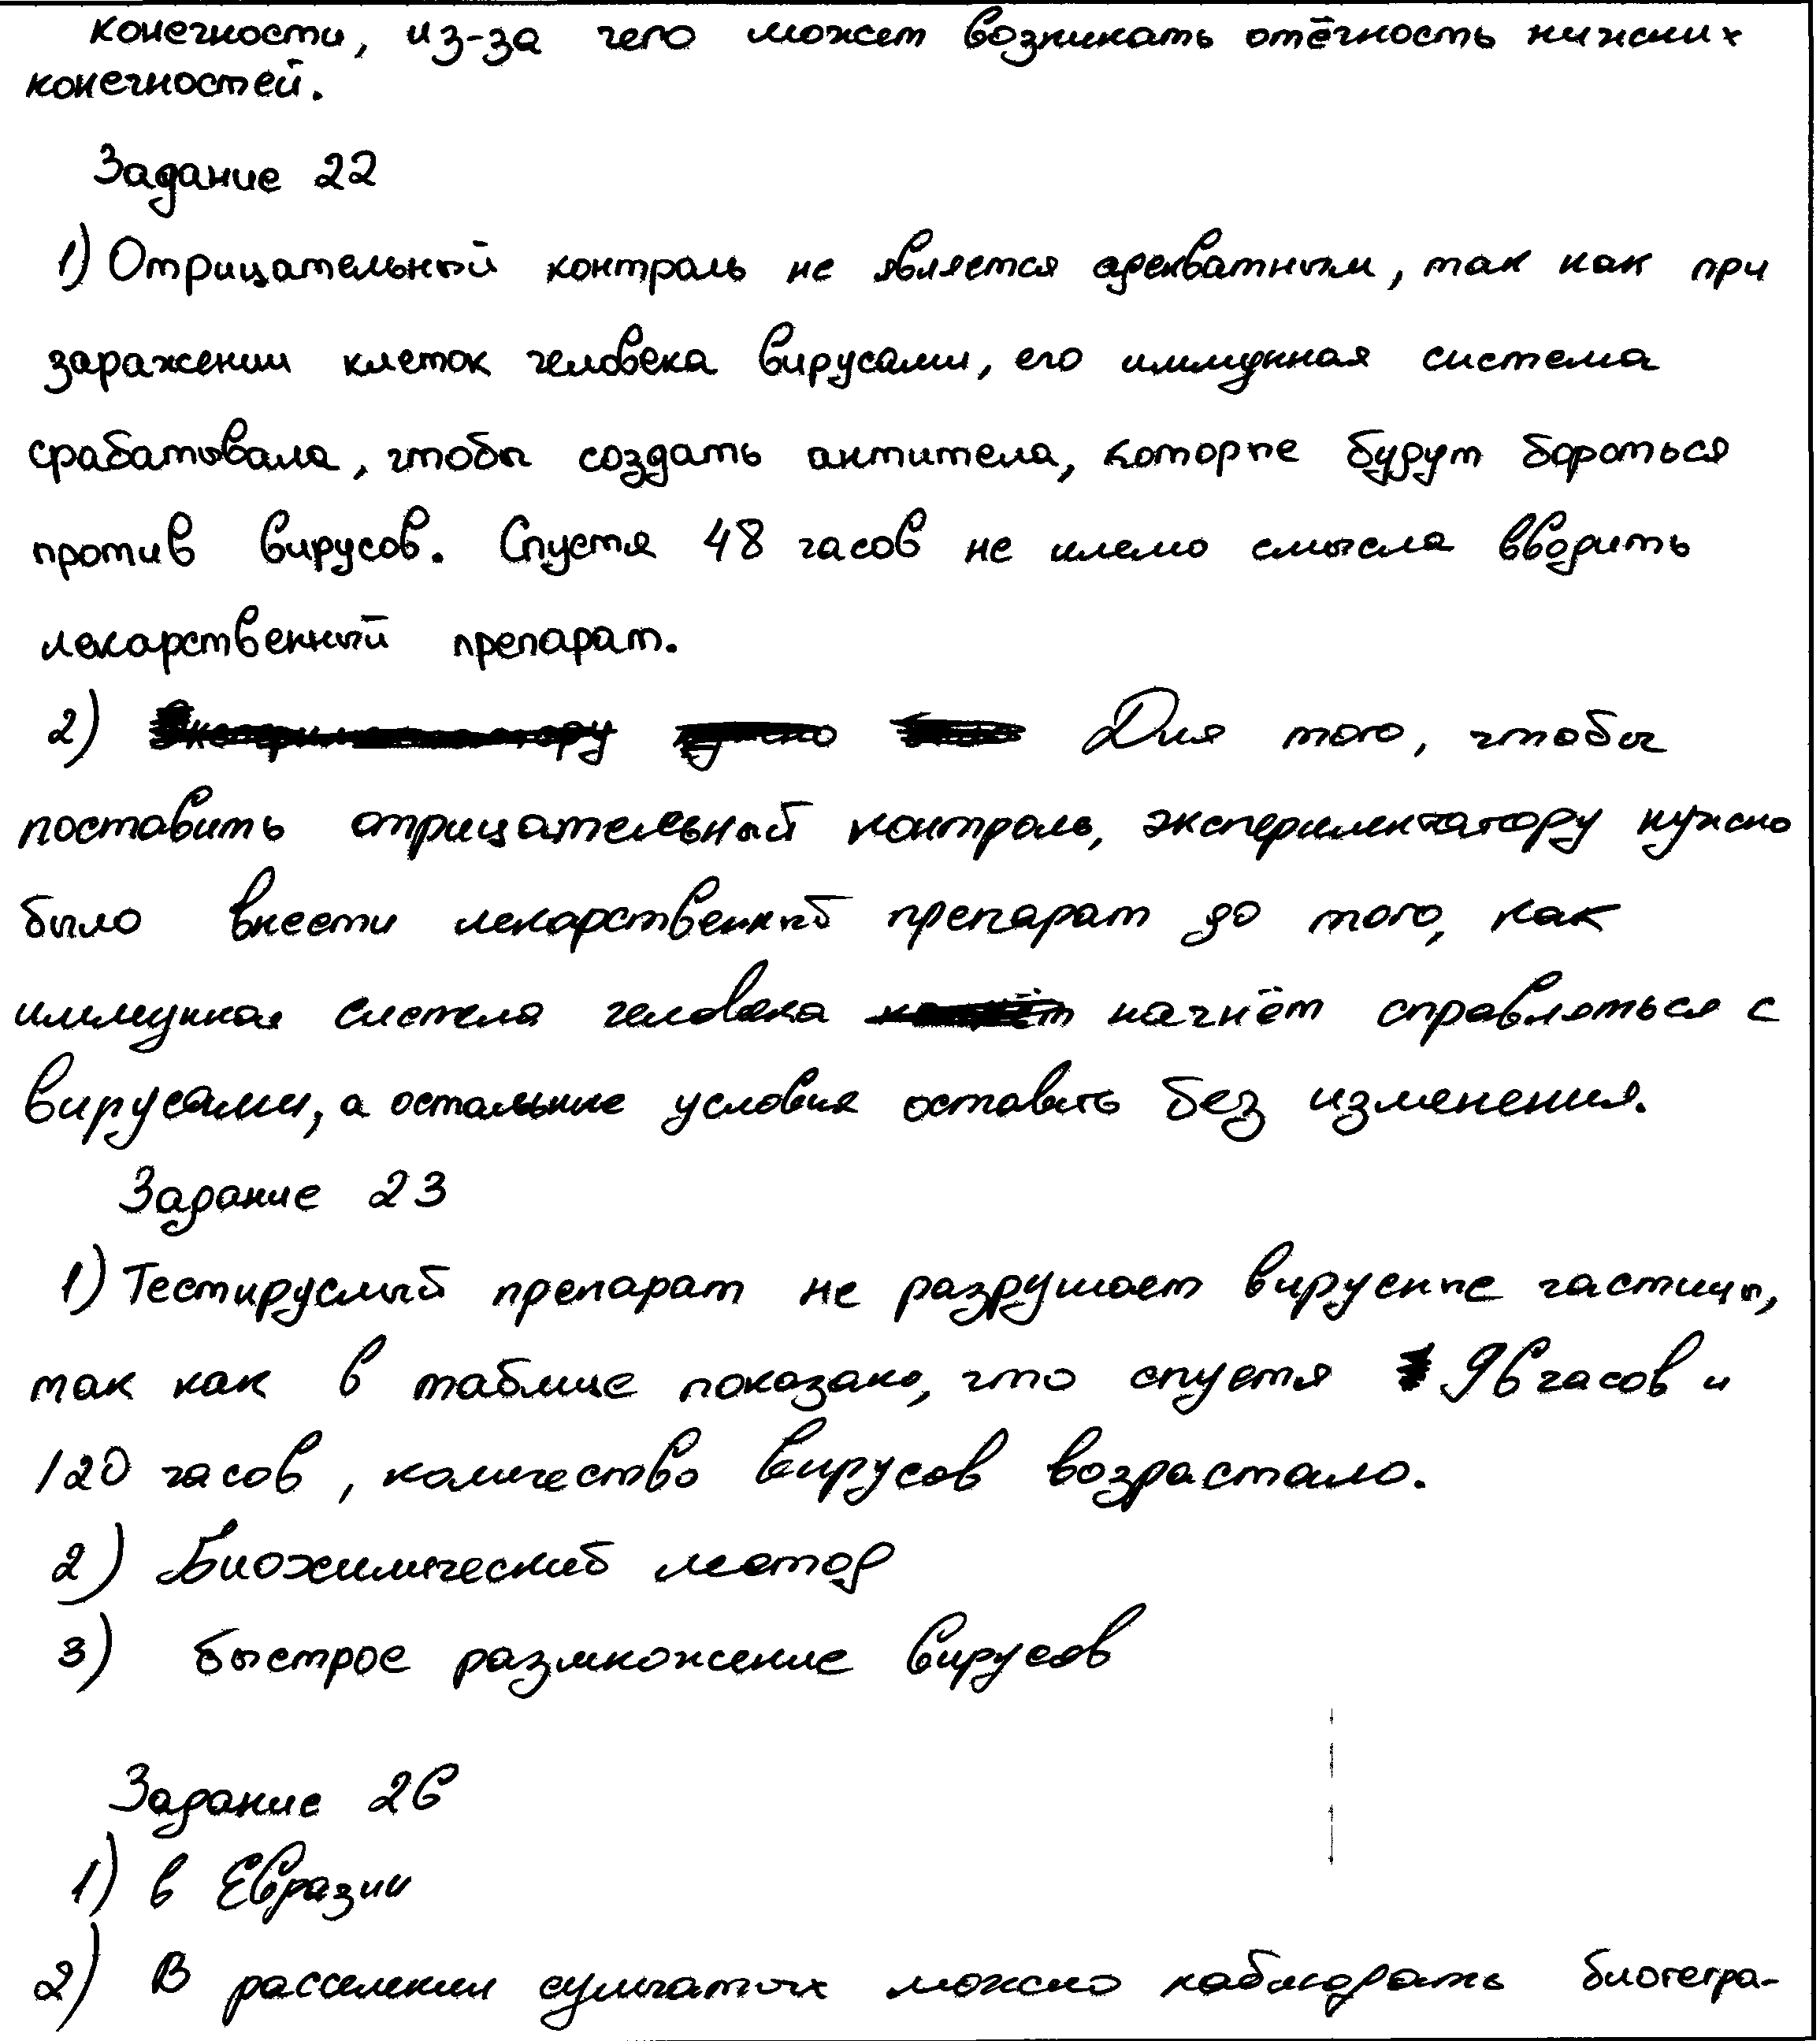 конечности, из-за чего может возникать отёчность нижних
конечностей.
Задание 22
1) Отрицательный контроль не является адекватным, так как при
заражении клеток человека вирусами, его иммунная система
срабатывала, чтобы создать антитела, которые будут бороться
против вирусов. Спустя 48 часов не имело смысла вводить
лекарственный препарат.
2) Для того, чтобы
поставить отрицательный контроль, экспериментатору нужно
было внести лекарственный препарат до того, как
иммунная система человека начнёт справляться с
вирусами, а остальные условия оставить без изменения.
Задание 23
1) Тестируемый препарат не разрушает вирусные частицы,
так как в таблице показано, что спустя 96 часов и
120 часов, количество вирусов возрастало.
2) Биохимический метод
3) быстрое размножение вирусов
Задание 26
1) в Евразии
2) В расселении сумчатых можно наблюдать биогегра-